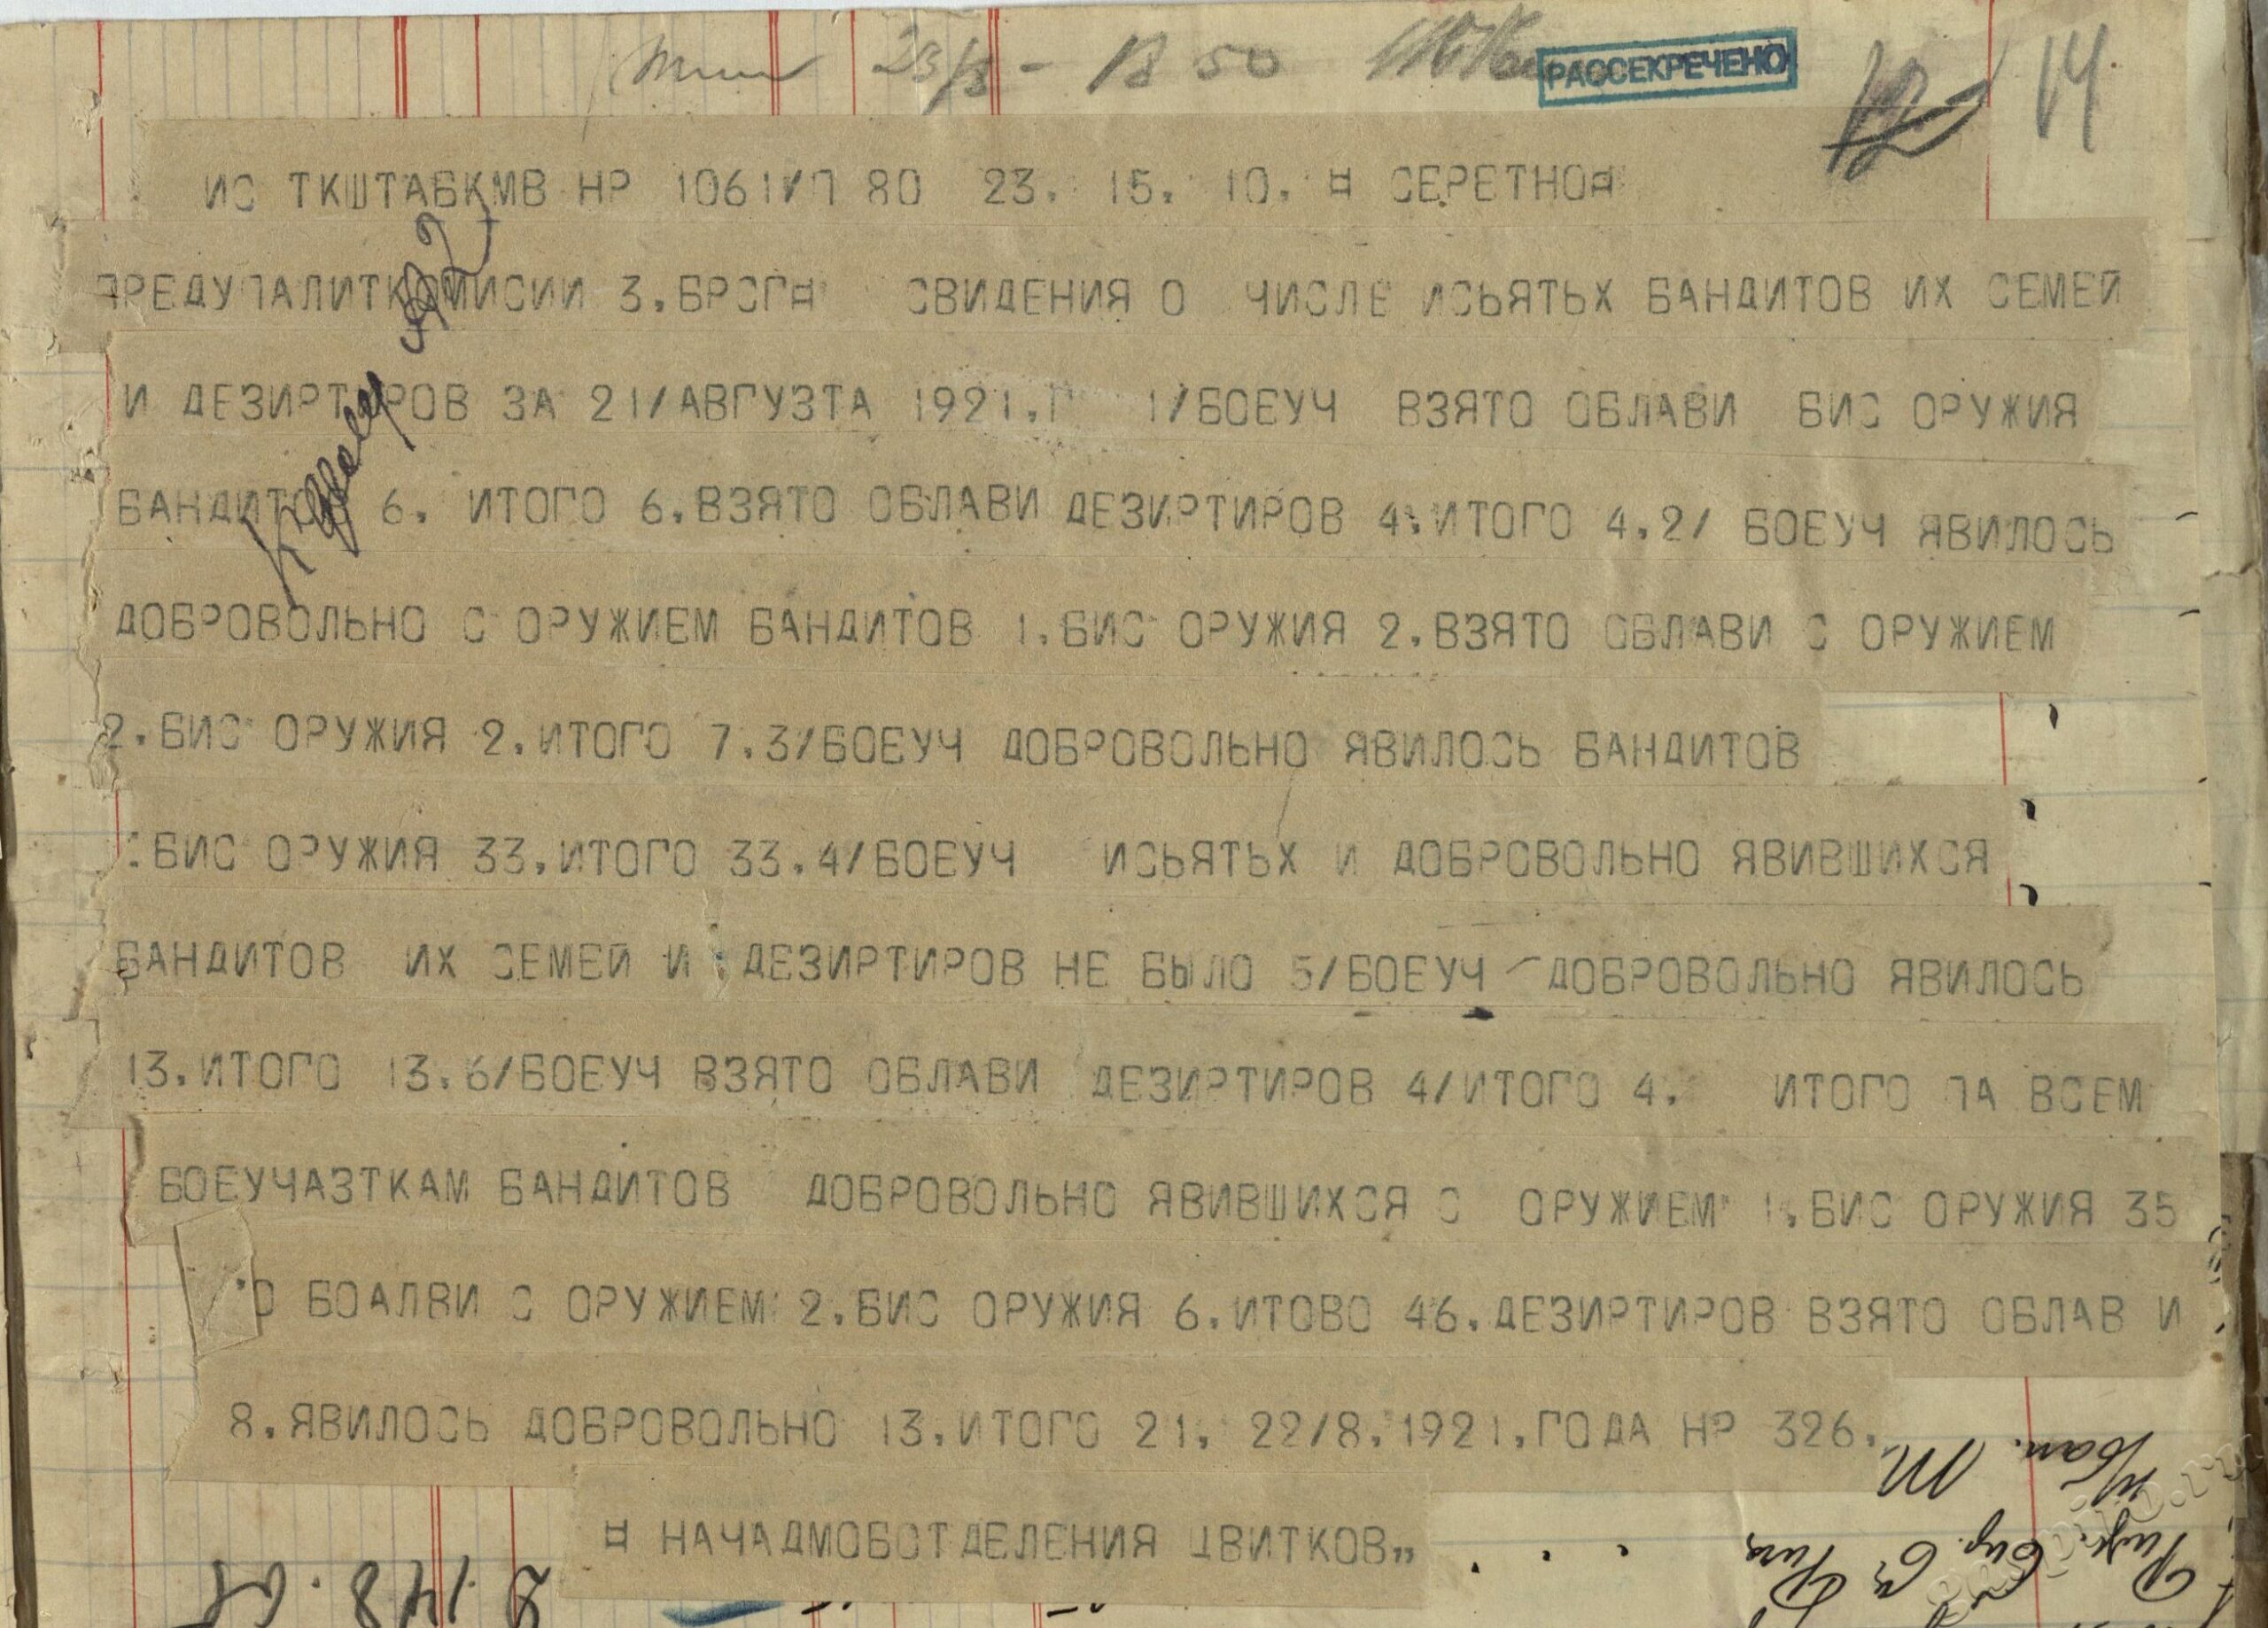 23/8 - 18 50
РАССЕКРЕЧЕНО
12 14
ИС ТКШТАБКМВ НР 1061/П 80 23. 15. 10. ¤ СЕРЕТНО¤
ПРЕДУПАЛИТКОМИСИИ 3.БРСГ¤ СВИДЕНИЯ О ЧИСЛЕ ИСЬЯТЬХ БАНДИТОВ ИХ СЕМЕЙ
И ДЕЗИРТИРОВ ЗА 21/АВГУЗТА 1921.Г 1/БОЕУЧ ВЗЯТО ОБЛАВИ БИС ОРУЖИЯ
БАНДИТОВ 6. ИТОГО 6.ВЗЯТО ОБЛАВИ ДЕЗИРТИРОВ 4.ИТОГО 4.2/ БОЕУЧ ЯВИЛОСЬ
ДОБРОВОЛЬНО С ОРУЖИЕМ БАНДИТОВ 1.БИС ОРУЖИЯ 2.ВЗЯТО ОБЛАВИ С ОРУЖИЕМ
2.БИС ОРУЖИЯ 2.ИТОГО 7.3/БОЕУЧ ДОБРОВОЛЬНО ЯВИЛОСЬ БАНДИТОВ
БИС ОРУЖИЯ 33.ИТОГО 33.4/БОЕУЧ ИСЬЯТЬХ И ДОБРОВОЛЬНО ЯВИВШИХСЯ
БАНДИТОВ ИХ СЕМЕЙ И ДЕЗИРТИРОВ НЕ БЫЛО 5/БОЕУЧ ДОБРОВОЛЬНО ЯВИЛОСЬ
13.ИТОГО 13.6/БОЕУЧ ВЗЯТО ОБЛАВИ ДЕЗИРТИРОВ 4/ИТОГО 4. ИТОГО ПА ВСЕМ
БОЕУЧАЗТКАМ БАНДИТОВ ДОБРОВОЛЬНО ЯВИВШИХСЯ С ОРУЖИЕМ 1.БИС ОРУЖИЯ 35
БОАЛВИ С ОРУЖИЕМ 2.БИС ОРУЖИЯ 6.ИТОВО 46.ДЕЗИРТИРОВ ВЗЯТО ОБЛАВ И
8.ЯВИЛОСЬ ДОБРОВОЛЬНО 13.ИТОГО 21. 22/8.1921.ГОДА НР 326.
¤ НАЧАДМОБОТДЕЛЕНИЯ ЦВИТКОВ„